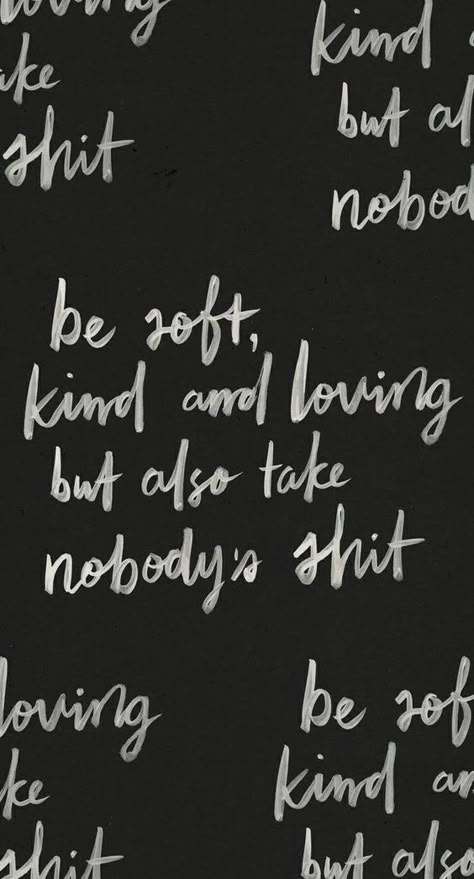 loving
ake
shit
kind a
but al
nobod
be soft,
kind and loving
but also take
nobody's shit
loving
ke
shit
be sof
kind an
but also